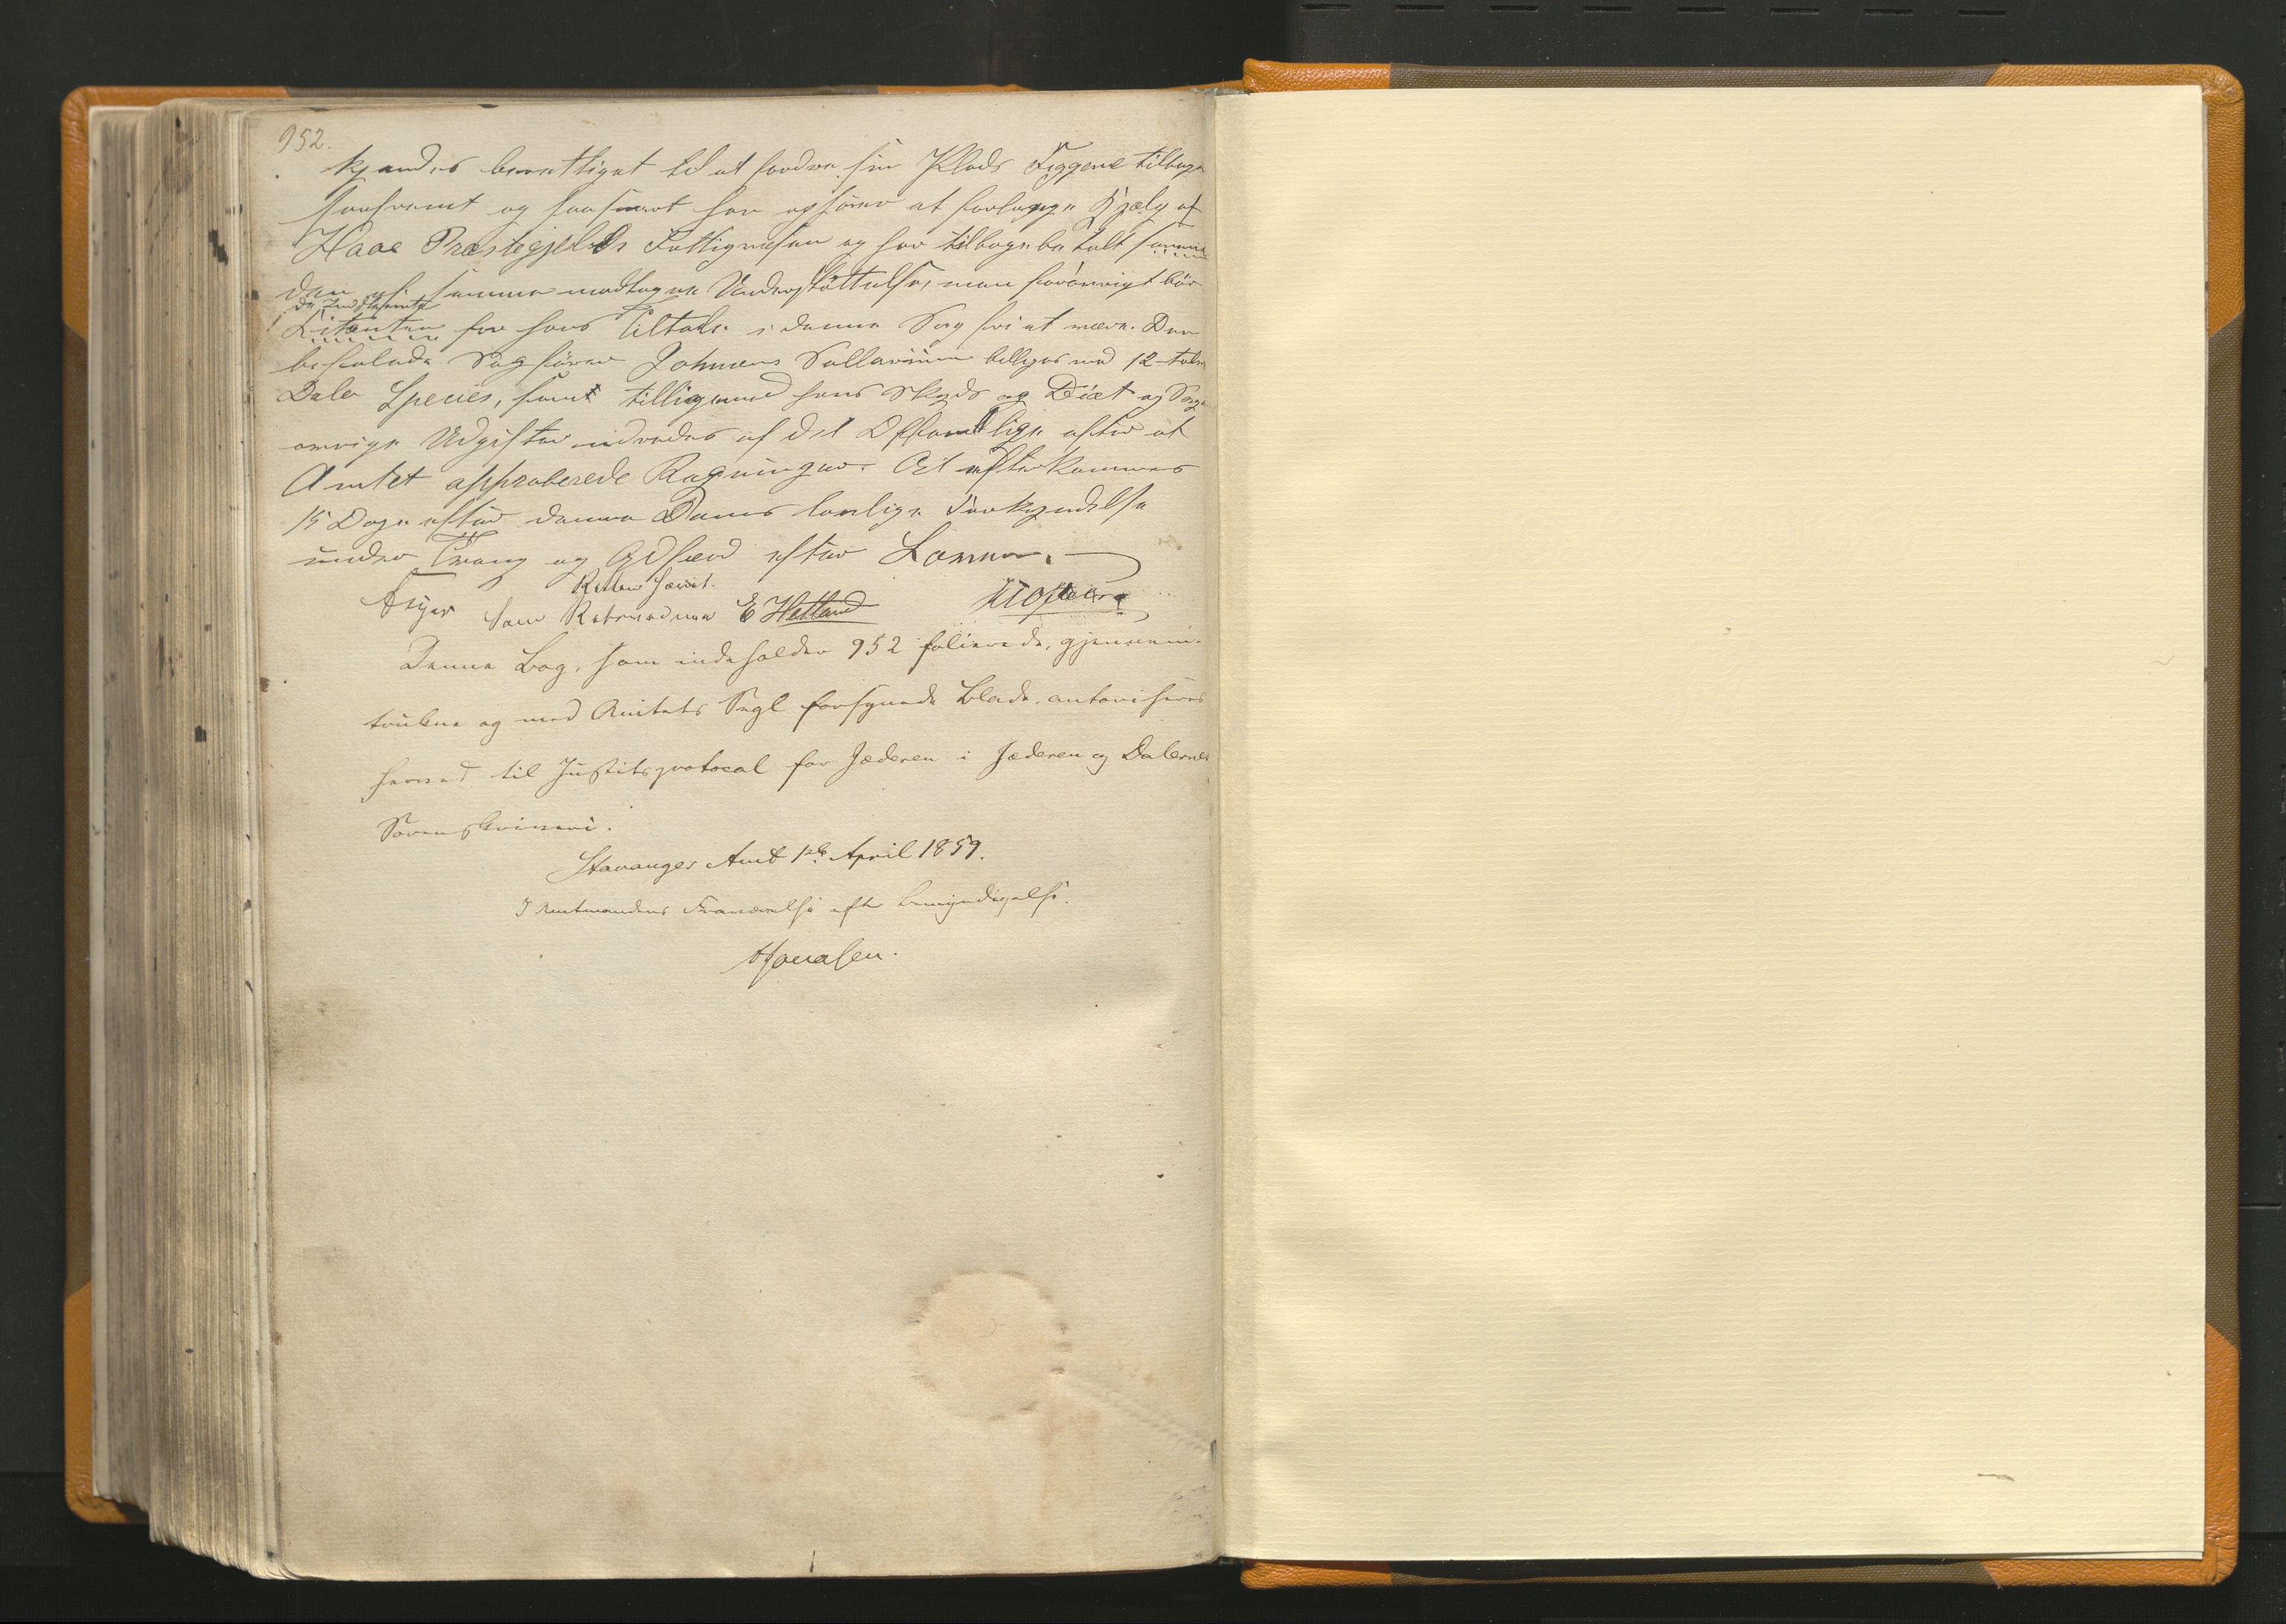 952.
kjendes berettiget til at fordre sin Plads Tiggene tilbage
saafremt og saasnart han ophører at forlange Hjælp af
Haae Præstegjelds Fattigvæsen og har tilbagebetalt samme
den af samme modtagne Understøttelse, men forøvrigt bør
de Indstevnte
Citanten for hans Tiltale i denne Sag fri at være. Den
befalede Sagfører Johnsens Sallarium billiges med 12 tolv
Daler Species, som tilligemed hans Skyds og Diæt og Sagens
øvrige Udgifter udredes af det Offentlige efter af
Amtet approberede Regninger. At efterkommes
15 Dage efter denne Doms lovlige Forkyndelse
under Tvang og Adfærd efter Loven.
Retten hævet.
som Retsvidner E Hetland
Denne Bog, som indeholder 952 folierede, gjennem-
trukne og med Amtets Segl forsynede Blade, autoriseres
herved til Justitsprotocol for Jæderen i Jæderen og Dalernes
Sorenskriveri.
Stavanger Amt 1ste April 1859.
I Amtmandens Fraværelse efter Bemyndigelse.